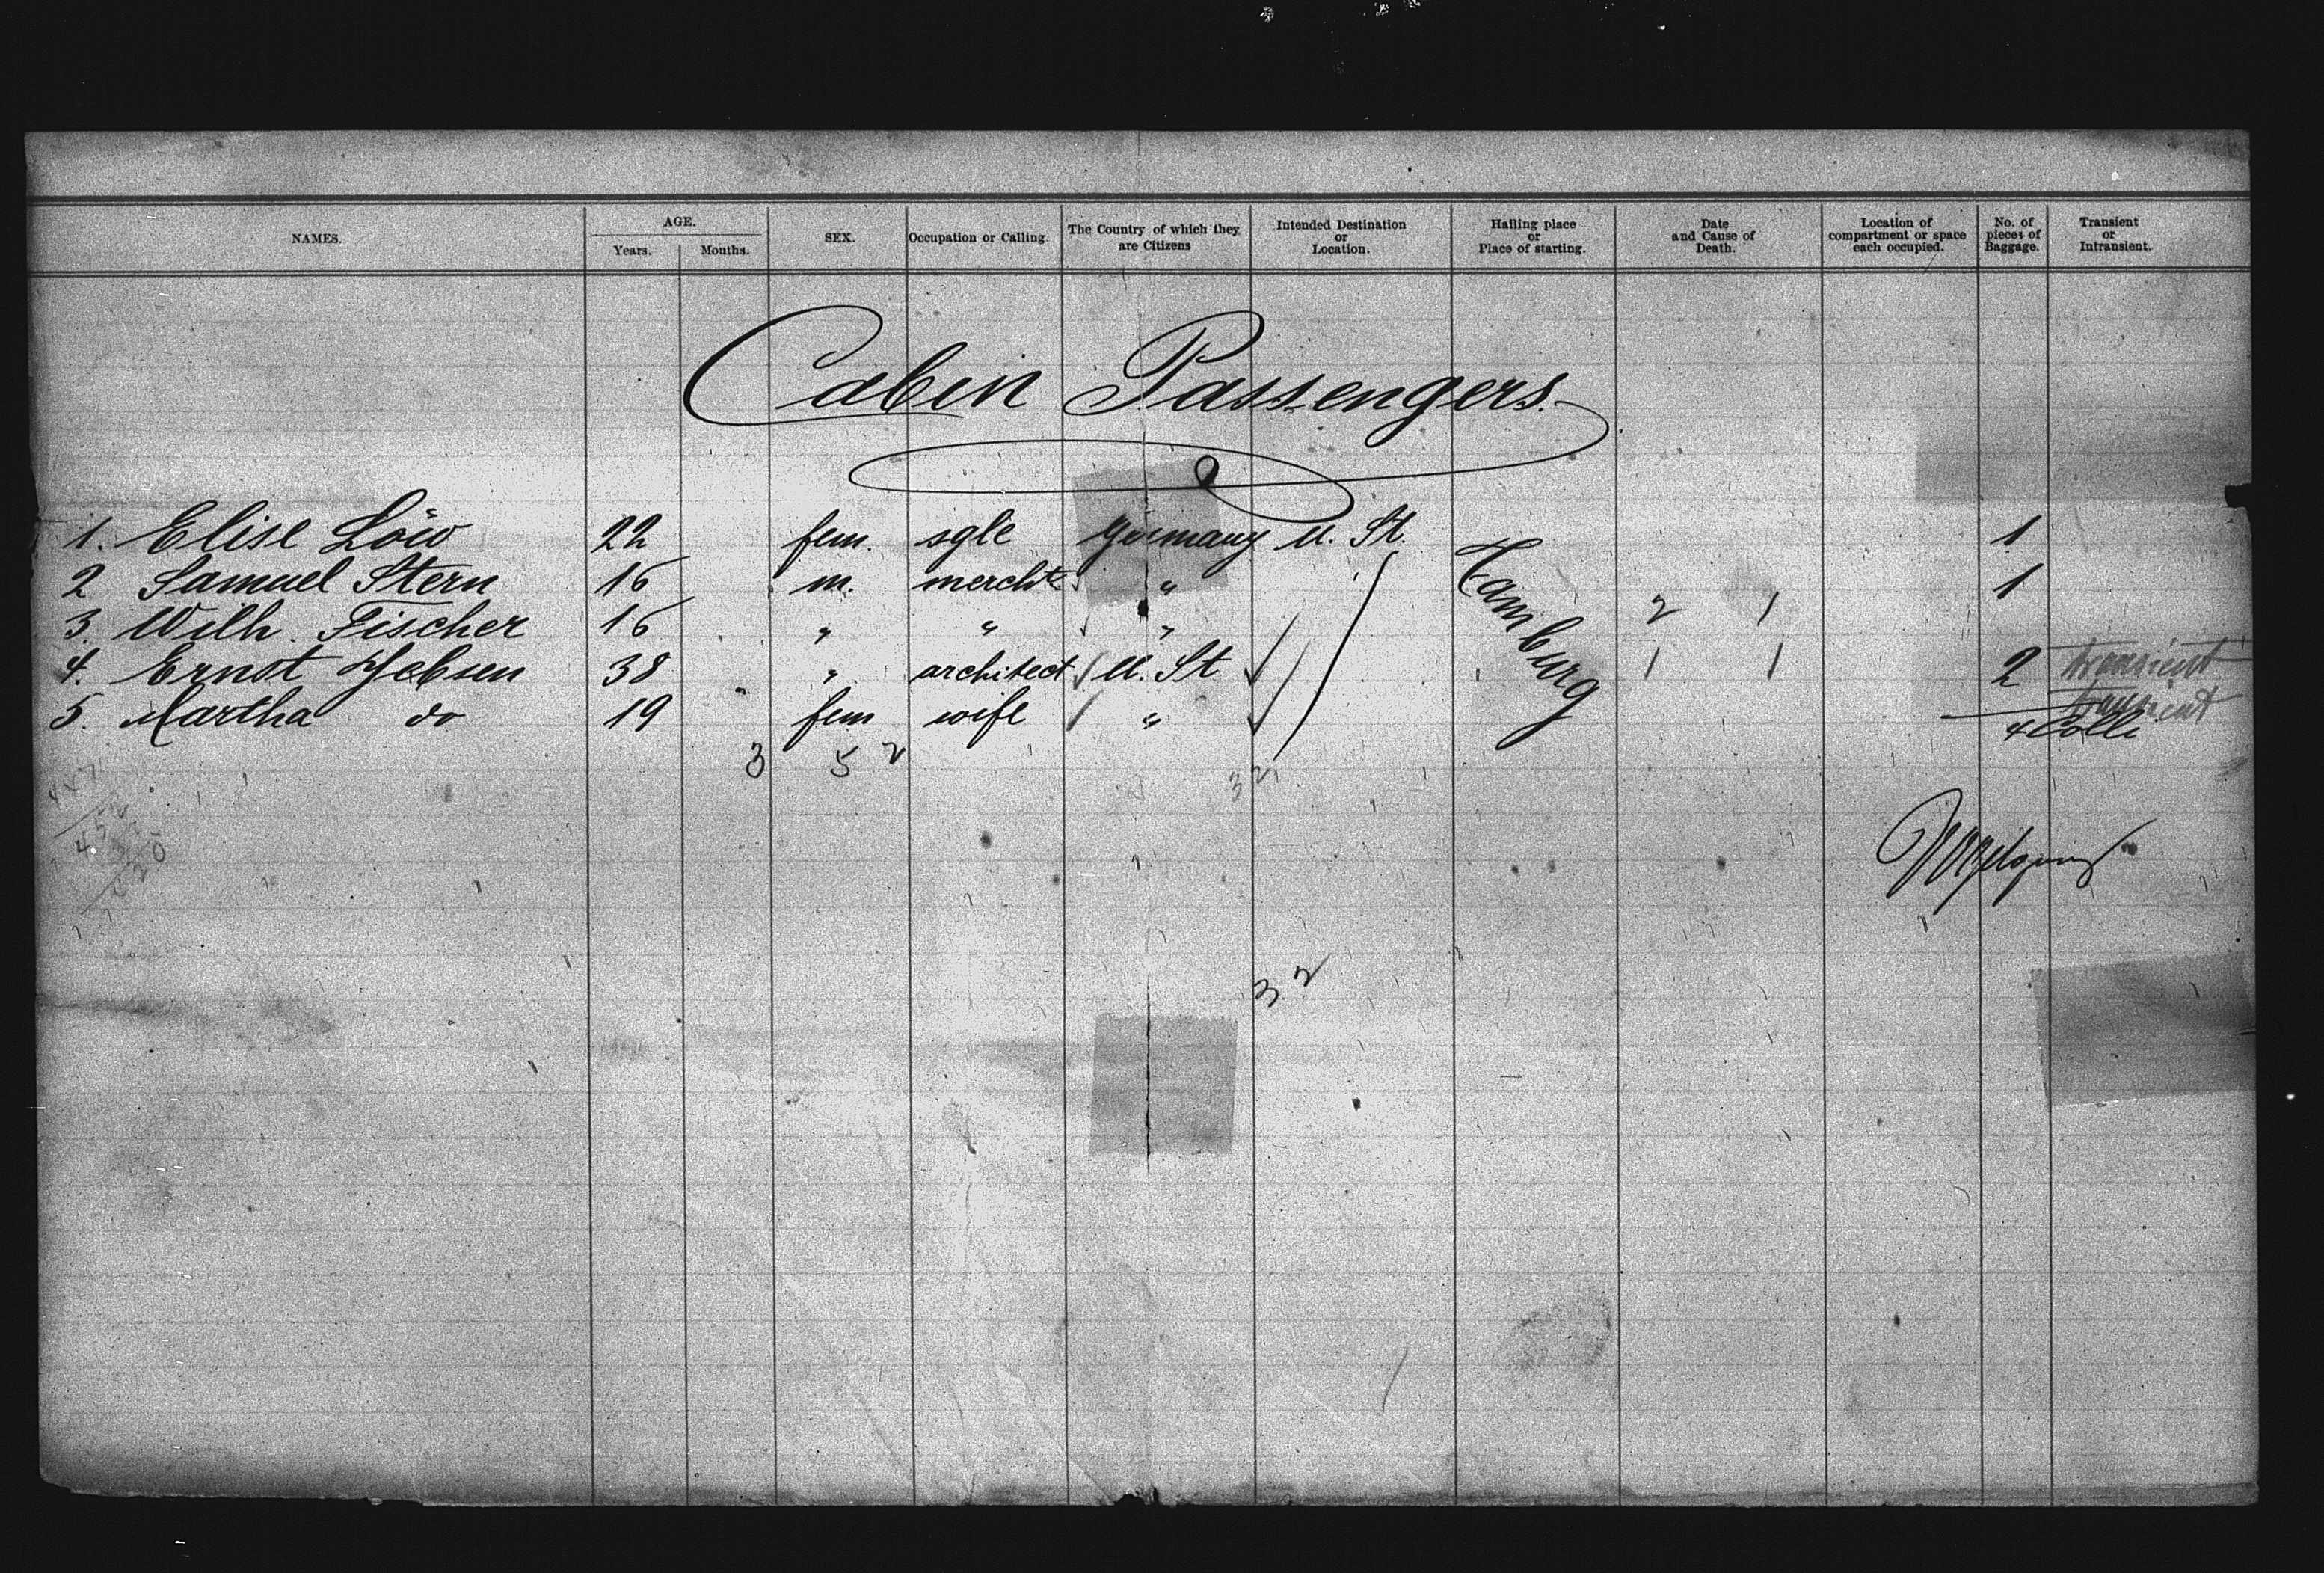 NAMES. AGE. Years. Months. SEX. Occupation or Calling. The Country of which they are Citizens Intended Destination or Location. Hailing place or Place of starting. Date and Cause of Death. Location of compartment or space each occupied. No. of pieces of Baggage. Transient or Intransient.
Cabin Passengers.
1. Elise Löw 22 fem. sgle Germany U. St. 1
2 Samuel Stern 16 m. mercht " 1
3. Wilh. Fischer 16 " " " 2 1
4. Ernst Jebsen 38 " architect U. St 1 1 2 transient
5. Martha do 19 fem wife " transient
Hamburg
4 Colli
3 5 2 3 2
3 2